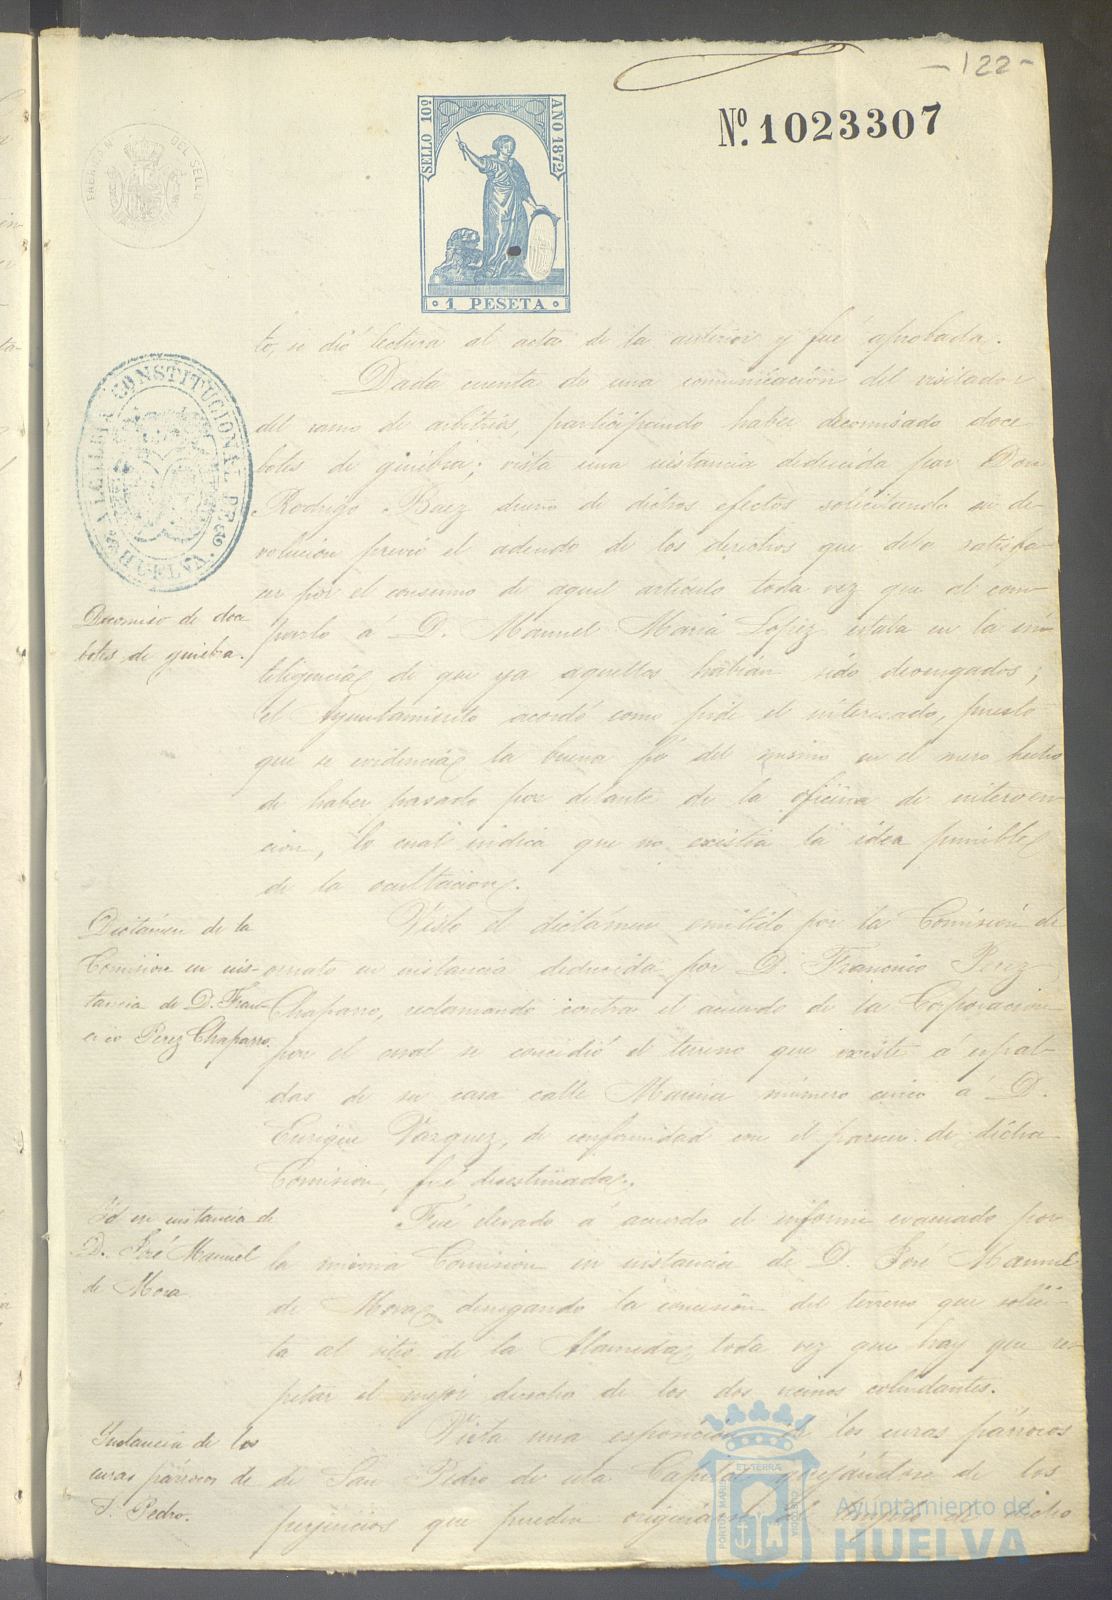 -122-
Nº. 1023307
SELLO 10º
AÑO 1872
1 PESETA
DEL SELLO
ALCALDIA CONSTITUCIONAL DE HUELVA
to, se dió lectura al acta de la anterior y fué aprobada.
Dada cuenta de una comunicación del visitador
del ramo de arbitrios, participando haber decomisado doce
botes de ginebra; vista una instancia deducida por Don
Rodrigo Baez dueno de dichos efectos solicitando su de-
volucion previo el adeudo de los derechos que debe satisfa-
cer por el consumo de aquel articulo toda vez que al com-
prarlo á D. Manuel Maria Lopez estaba en la in-
teligencia de que ya aquellos habian sido devengados;
el Ayuntamiento acordó como pide el interesado, puesto
que se evidencia la buena fé del mismo en el mero hecho
de haber pasado por delante de la oficina de interven
cion, lo cual indica que no existia la idea punible
de la ocultacion.
Decomiso de doce
botes de ginebra.
Visto el dictámen emitido por la Comision de
ornato en instancia deducida por D. Francisco Perez
Chaparro, reclamando contra el acuerdo de la Corporacion
por el cual se concedió el terreno que existe á espal-
das de su casa calle Marina número cinco á D.
Enrique Vazquez, de conformidad con el parecer de dicha
Comision, fué desestimada.
Dictámen de la
Comision en ins-
tancia de D. Fran-
cisco Perez Chaparro.
Fué elevado á acuerdo el informe evacuado por
la misma Comision en instancia de D. José Manuel
de Mora, denegando la concesion del terreno que solici-
ta al sitio de la Alameda, toda vez que hay que res-
petar el mejor derecho de los dos vecinos colindantes.
Id en instancia de
D. José Manuel
de Mora
Vista una esposicion de los curas párrocos
de San Pedro de esta Capital quejándose de los
perjuicios que pueden originarse al templo de dicho
Instancia de los
curas párrocos de
S. Pedro.
PORTUS MARIS
ET TERRÆ
CUSTODIA
Ayuntamiento de
HUELVA